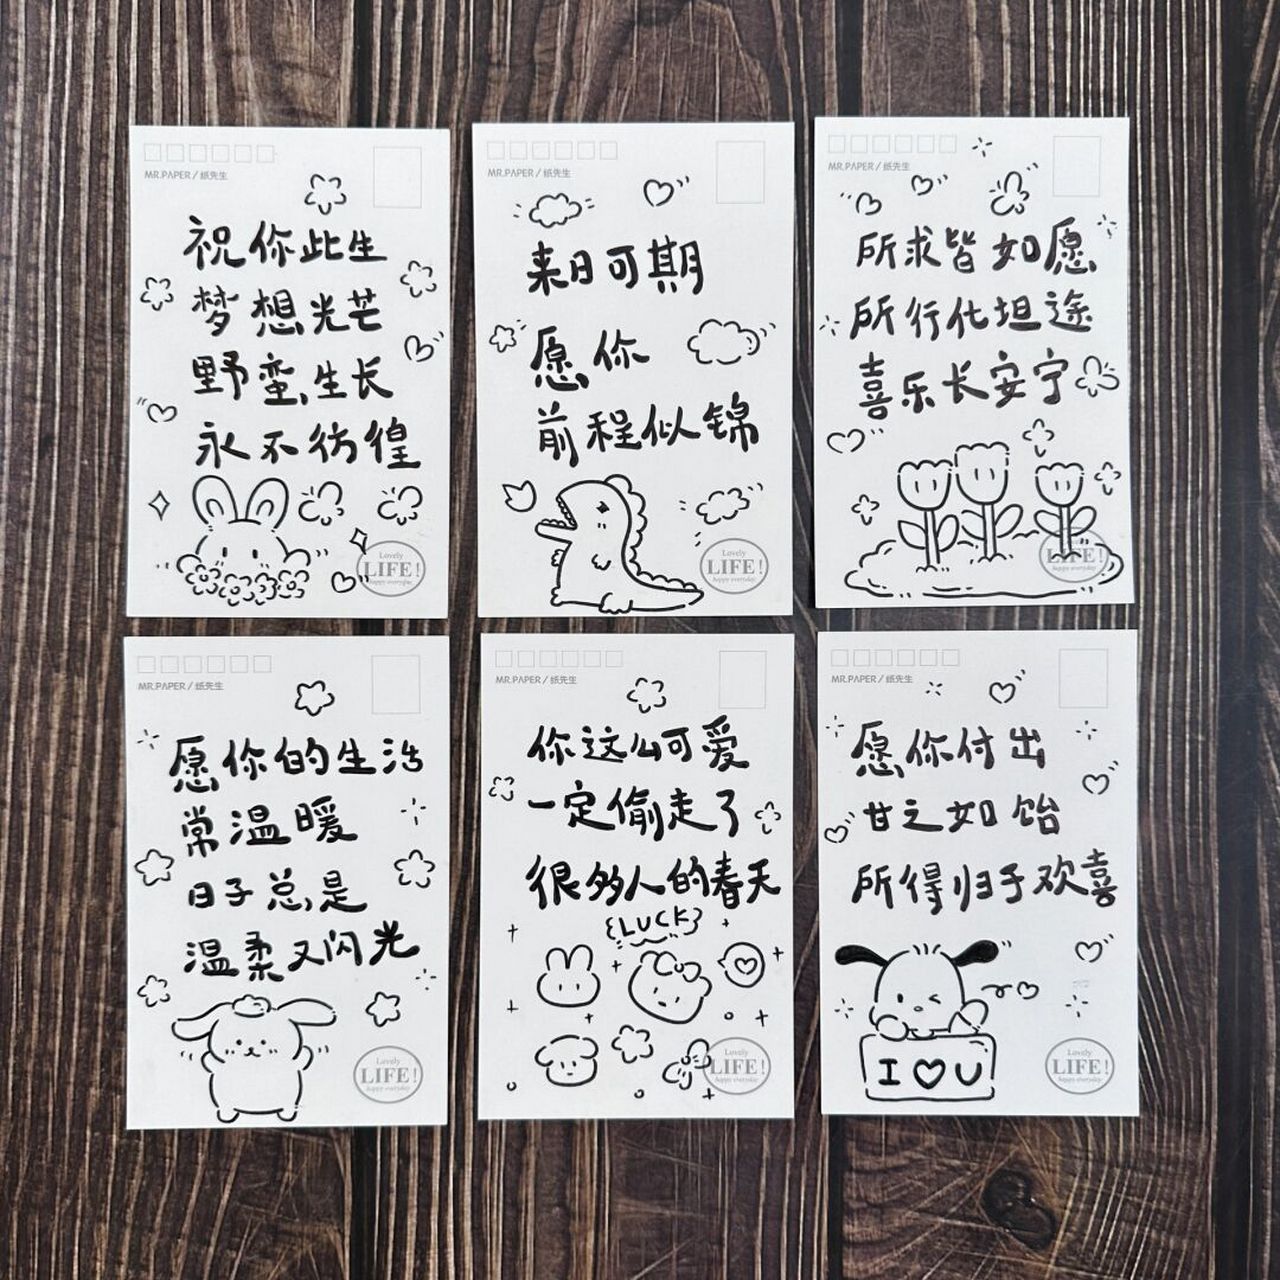 MR.PAPER/纸先生
祝你此生
梦想光芒
野蛮生长
永不彷徨
Lovely
LIFE!
happy everyday
MR.PAPER/纸先生
来日可期
愿你
前程似锦
Lovely
LIFE!
happy everyday
MR.PAPER/纸先生
所求皆如愿
所行化坦途
喜乐长安宁
Lovely
LIFE!
happy everyday
MR.PAPER/纸先生
愿你的生活
常温暖
日子总是
温柔又闪光
Lovely
LIFE!
happy everyday
MR.PAPER/纸先生
你这么可爱
一定偷走了
很多人的春天
LUCK
Lovely
LIFE!
happy everyday
MR.PAPER/纸先生
愿你付出
甘之如饴
所得归于欢喜
I♡U
Lovely
LIFE!
happy everyday